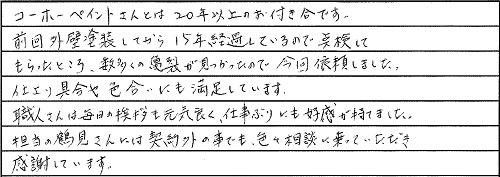 コーホーペイントさんとは20年以上のお付き合です。
前回外壁塗装してから15年経過しているので点検して
もらったところ、数多くの亀裂が見つかったので今回依頼しました。
仕上り具合や色合いにも満足しています。
職人さんは毎日の挨拶も元気良く、仕事ぶりにも好感が持てました。
担当の鶴見さんには契約外の事でも、色々相談に乗っていただき
感謝しています。